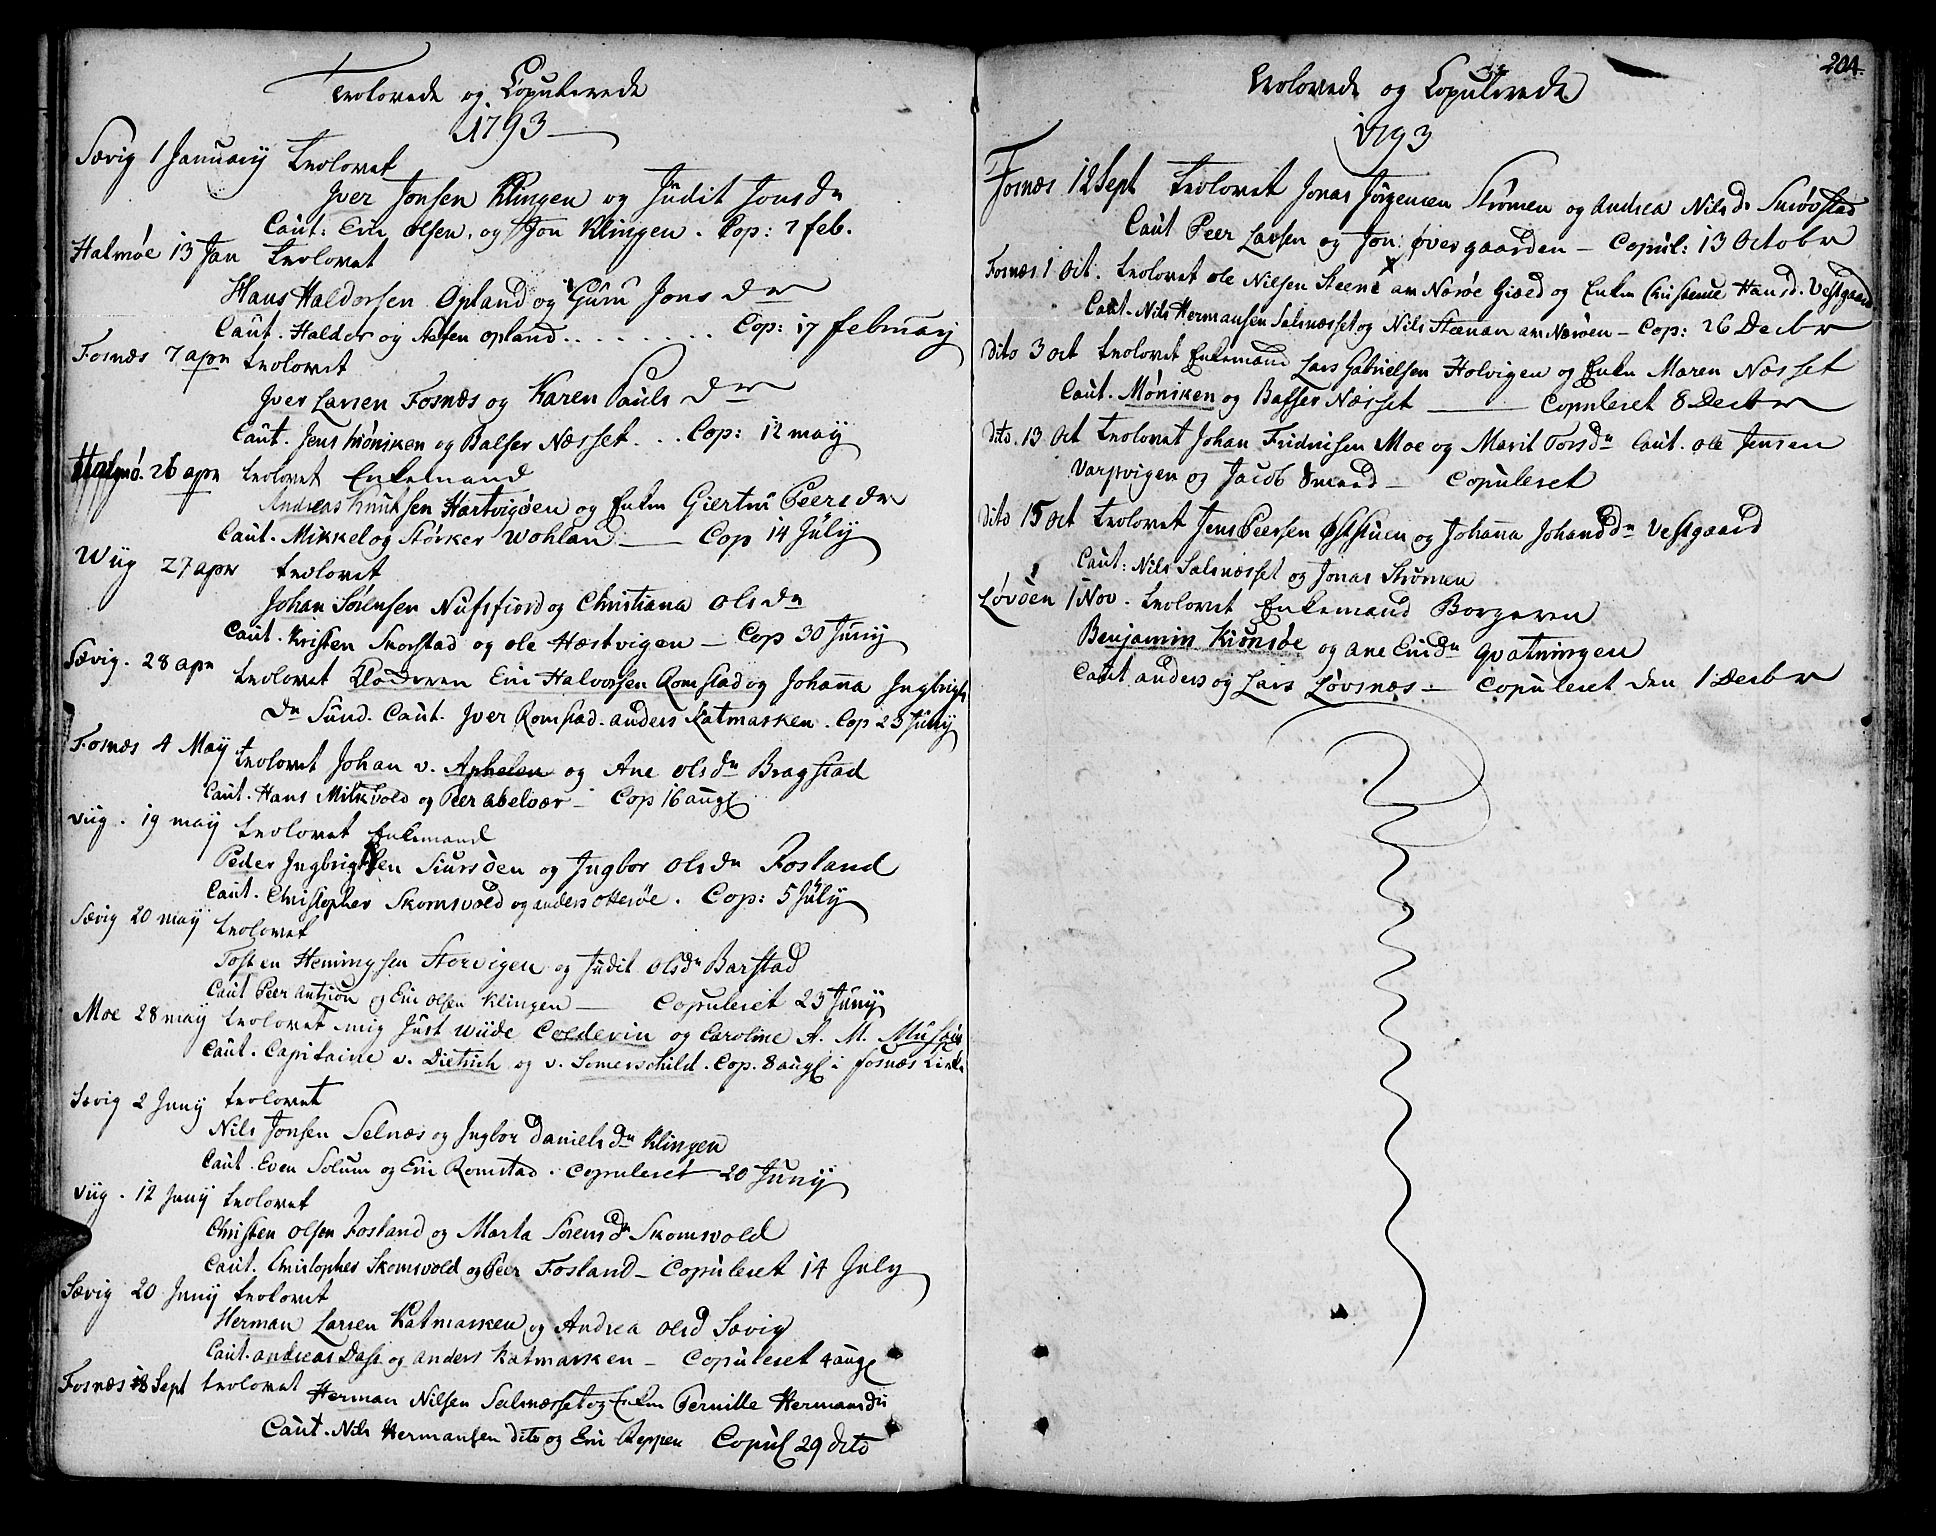 Trolovede og Copulerede
1793
Sævig 1 Januarij trolovet
Iver Jonsen Klingen og Judit Jonsdr
Caut: Eric Olsen, og Jon Klingen. Cop: 7 feb.
Halmøe 13 Jan trolovet
Hans Haldorsen Opland og Guru Jonsdr
Caut. Haldor og Opland . . . . . . . . Cop: 17 februarij
Fosnæs 7 apr trolovet
Iver Larsen Fosnæs og Karen Paulsdr
Caut. Jens Mønichen og Balser Næsset . . . Cop: 12 maij
Halmø. 26 apr trolovet Enkemand
Andreas Knutsen Hartvigøen og Enken Giertru Peersdr
Caut. Mikkel og Størker Wohland — Cop 14 Julij
Wiig 27 apr trolovet
Johan Sørensen Nufsfiord og Christiana Olsdr
Caut. Kristen Skorstad og Ole Hæstvigen — Cop 30 Junij
Sævig. 28 apr trolovet Eric Halvorsen Romstad og Johanna Ingbrigts
dr Sund. Caut. Iver Romstad. Anders Katmarken. Cop 23 Junij
Fosnæs 4 Maij trolovet Johan v. Aphelen og Ane Olsdr Bragstad
Caut. Hans Milkvold og Peer Abelvær — Cop 16 aug
Viig. 19 maij trolovet Enkemand
Peder Ingbrigtsen Siursøen og Ingbor Olsdr Fosland
Caut. Christopher Skomsvold og Anders Otterøe. Cop: 5 Julij
Sævig 20 maij trolovet
Tosten Hemingsen Storvigen og Judit Olsdr Barstad
Caut Peer Antzion og Eric Olsen Klingen — Copuleret 23 Junij
Moe 28 maij trolovet mig Just Wiide Coldevin og Caroline A. M.
Caut. Capitaine v. Dietrich og v. Somerschild. Cop. 8 aug i Fosnæs Kirke
Sævig 2 Junij trolovet
Nils Jonsen Selnæs og Ingbor Danielsdr Klingen
Caut. Even Solum og Eric Romstad. Copuleret 20 Junij
Viig. 12 Junij trolovet
Christen Olsen Fosland og Marta Sørensdr Skomsvold
Caut. Christopher Skomsvold og Peer Fosland — Copuleret 14 Julij
Sævig 20 Junij trolovet
Herman Larsen Katmarken og Andrea Olsd Sævig
Caut. Andreas Dass og Anders Katmarken — Copuleret 4 aug
Fosnæs 8 Sept trolovet Herman Nilsen Salsnæsset og Enken Pernille Hermansdr
Caut. Nils Hermansen dito og Eric Reppen Copul 29 dito
204.
Trolovede og Copulerede
1793
Fosnæs 12 Sept trolovet Jonas Jørgensen Strømen og Andrea Nilsd. Smøvstad
Caut Peer Larsen og Jon Øvergaarden — Copul: 13 Octobr
Fosnæs 1 Oct. trolovet Ole Nilsen Steene av Nærøe Gield og Enken Christense Hansd. Vestgaard
Caut. Nils Hermansen Salsnæsset og Nils Steenan av Nærøen — Cop: 26 Decbr
Dito 3 Oct trolovet Enkemand Lars Gabrielsen Holvigen og Enken Maren Næsset
Caut. Mønichen og Balser Næsset — Copuleret 8 Decbr
Dito. 13 Oct trolovet Johan Fridricsen Moe og Marit Torsdr Caut. Ole Jensen
Varpvigen og Jacob — Copuleret
Dito 15 Oct trolovet Jens Peersen Øststuen og Johanna Johansdr Vestgaard
Caut: Nils Salsnæsset og Jonas Strømen
Løvøen 1 Nov. trolovet Enkemand Borgeren
Benjamin Kronsøe og Ane Ericdr Qvatningen
Caut Anders og Lars Løvsnæs — Copuleret den 1 Decbr